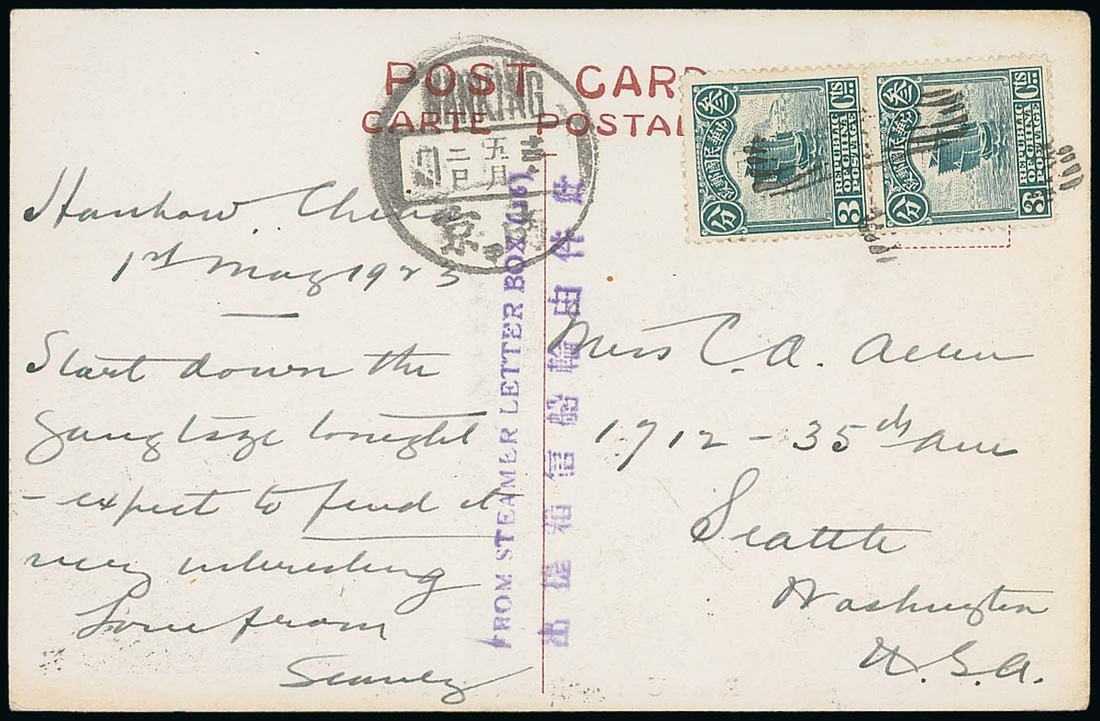 POST CARD
CARTE POSTAL
NANKING
五月
二日
京
Hankow China
1st May 1923
Start down the
Yangtsze tonight
- expect to find it
very interesting
Love from
FROM STEAMER LETTER BOX
此件由輪船信箱提出
叁 中華民國郵政 分
3 Cts
REPUBLIC
OF CHINA
POSTAGE
3
叁 中華民國郵政 分
3 Cts
REPUBLIC
OF CHINA
POSTAGE
3
Miss C. A. Allen
1712 - 35th Ave
Seattle
Washington
U.S.A.